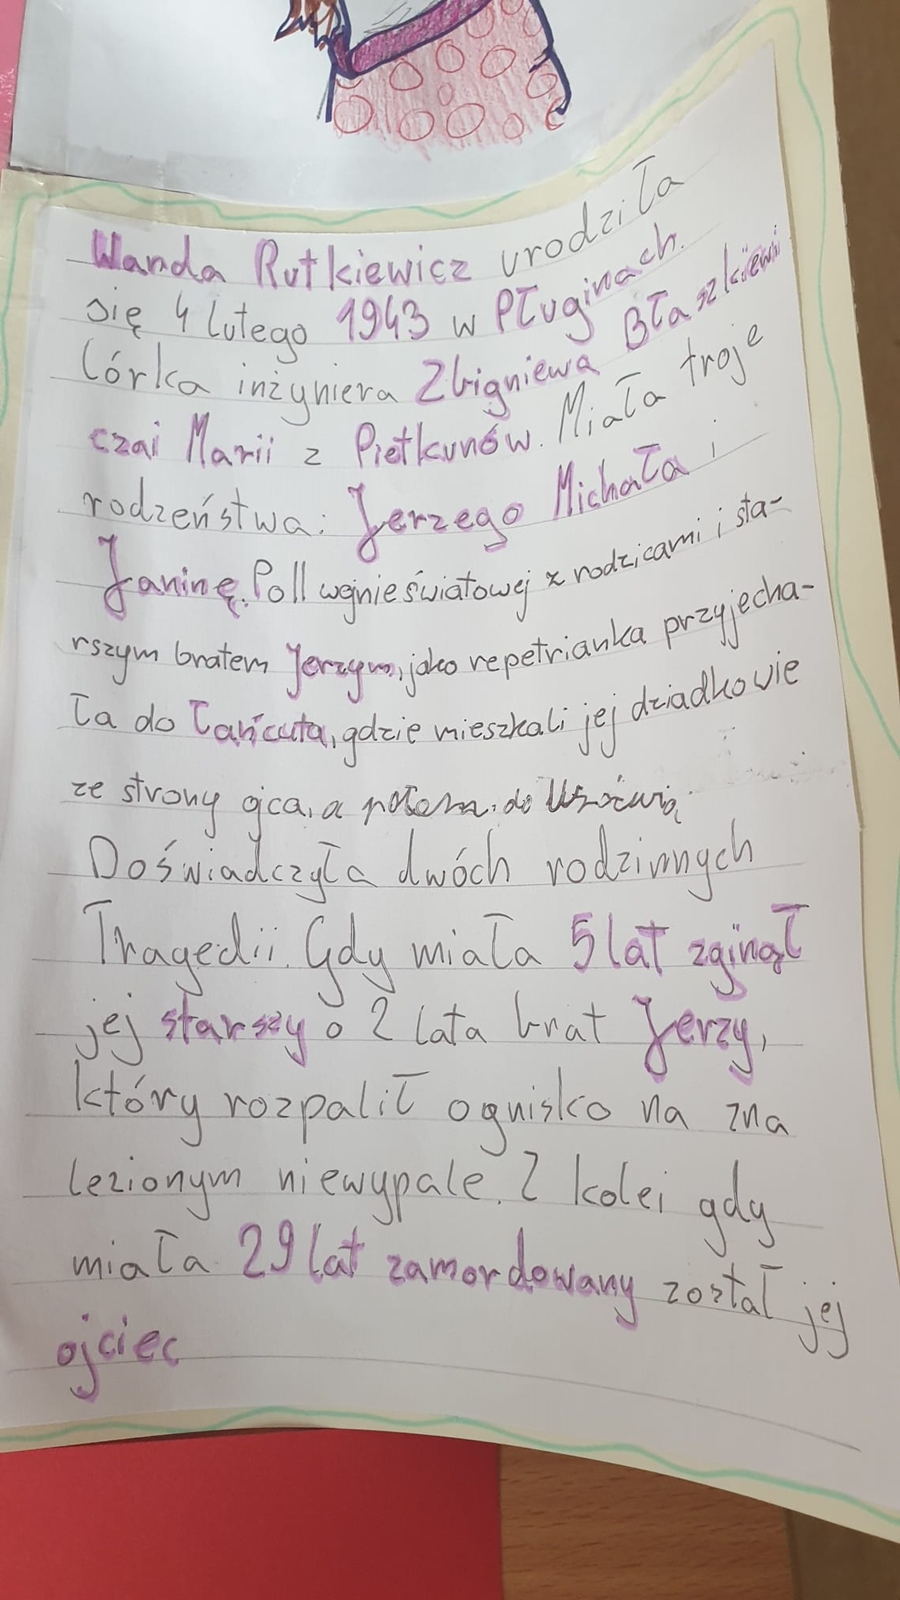 Wanda Rutkiewicz urodziła
się 4 lutego 1943 w Pługinach.
Córka inżyniera Zbigniewa Błaszkiewi
czai Marii z Pietkunów. Miała troje
rodzeństwa: Jerzego Michała i
Janinę. Po II wojnie światowej z rodzicami i sta-
rszym bratem Jerzym, jako repetrianka przyjecha-
ła do Łańcuta, gdzie mieszkali jej dziadkowie
ze strony ojca, a potem do
Doświadczyła dwóch rodzinnych
Tragedii. Gdy miała 5 lat zginął
jej starszy o 2 lata brat Jerzy,
który rozpalił ognisko na zna
lezionym niewypale. Z kolei gdy
miała 29 lat zamordowany został jej
ojciec